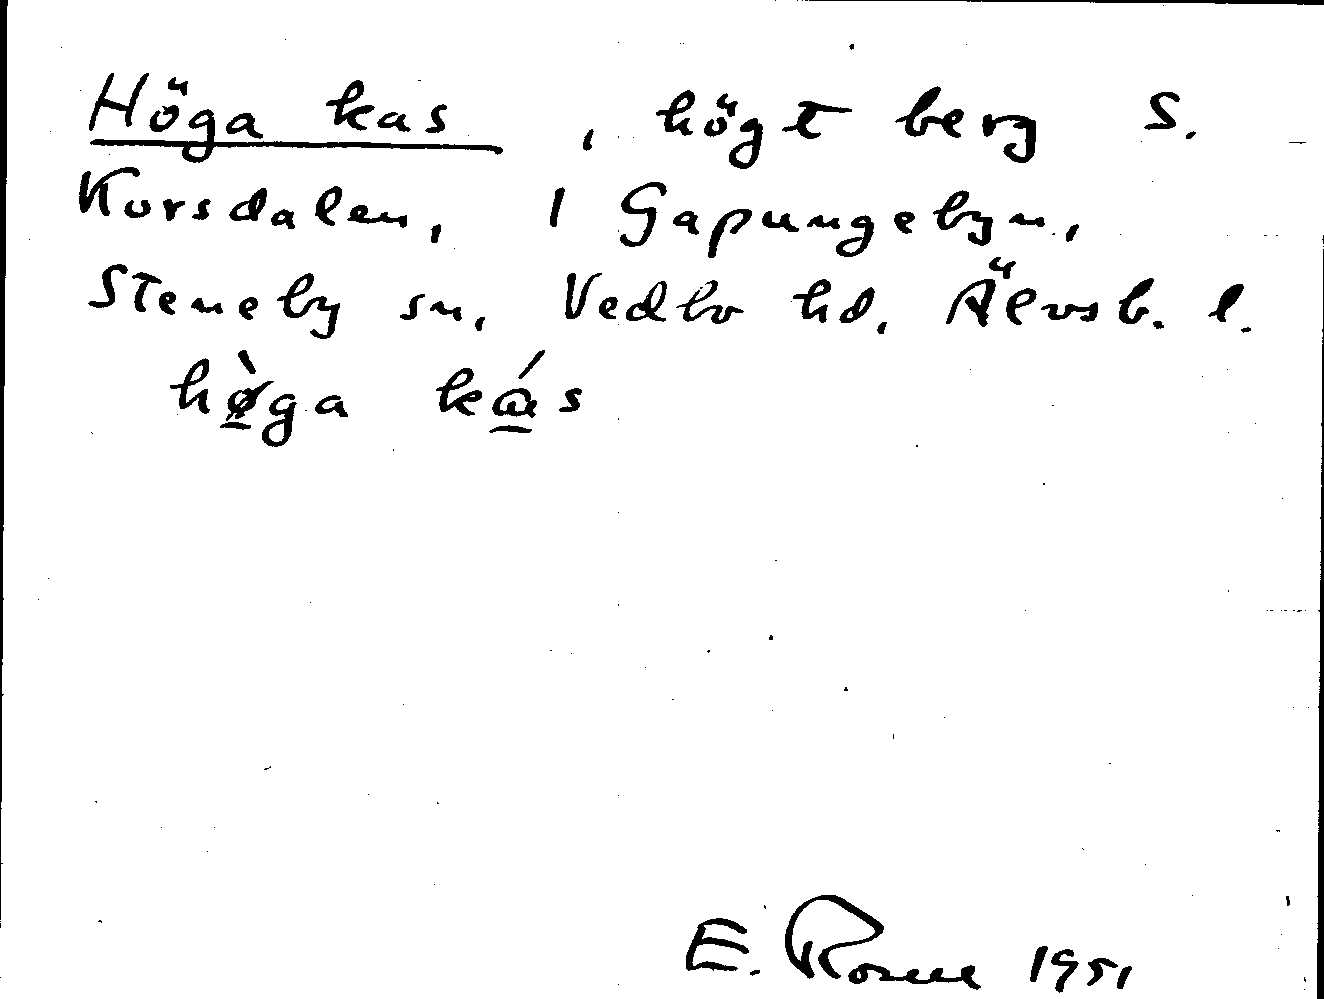 Höga kas, högt berg S.
Korsdalen, 1 Gapungebyn,
Steneby sn, Vedbo hd, Älvsb. l.
hø̀ga ká̱s
E. Rosell 1951